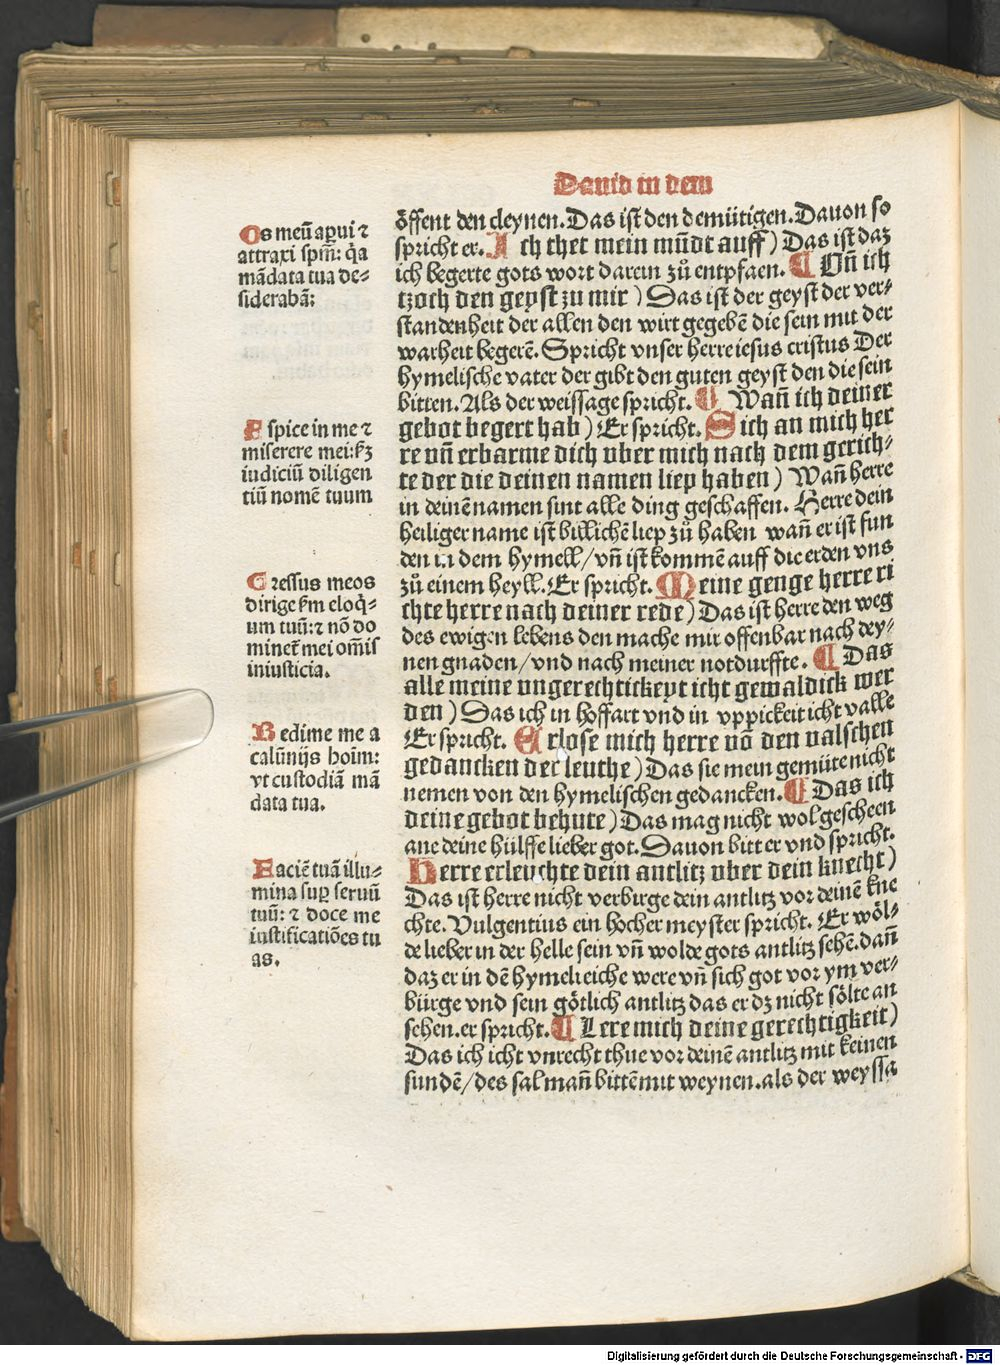 Dauid in dem
Os meū aꝑui ⁊
attraxi spm̄: q̇a
mādata tua de⸗
siderabā:
Aspice in me ⁊
miserere mei: ẜm
iudiciū diligen
tiū nomē tuum
Gressus meos
dirige ẜm eloq̇⸗
um tuū: ⁊ nō do
minet᷑ mei om̄is
iniusticia.
Redime me a
calūnijs hoīm:
vt custodiā mā
data tua.
Faciē tuā illu⸗
mina suꝑ seruū
tuū: ⁊ doce me
iustificatiōes tu
as.
öffent den cleynen. Das ist den demütigen. Dauon so
spricht er. Ich thet mein mūdt auff) Das ist daz
ich begerte gots wort darein zů entpfaen. ¶ Vñ ich
tzoch den geyst zu mir) Das ist der geyst der ver⸗
standenheit der allen den wirt gegebē die sein mit der
warheit begerē. Spricht vnser herre iesus cristus Der
hymelische vater der gibt den guten geyst den die sein
bitten. Als der weissage spricht. ¶ Wañ ich deiner
gebot begert hab) Er spricht. Sich an mich her
re vñ erbarme dich vber mich nach dem gerich⸗
te der die deinen namen liep haben) Wañ herre
in deinē namen sint alle ding geschaffen. Herre dein
heiliger name ist billichē liep zů haben wañ er ist fun
den in dem hymell/vñ ist kommē auff die erden vns
zů einem heyll. Er spricht. Meine genge herre ri
chte herre nach deiner rede) Das ist herre den weg
des ewigen lebens den mache mir offenbar nach dey⸗
nen gnaden/vnd nach meiner notdurffte. ¶ Das
alle meine vngerechtickeyt icht gewaldick wer
den) Das ich in hoffart vnd in vppickeit icht valle
Er spricht. Erlose mich herre vō den valschen
gedancken der leuthe) Das sie mein gemüte nicht
nemen von den hymelischen gedancken. ¶ Das ich
deine gebot behute) Das mag nicht wol gescheen
ane deine hülffe lieber got. Dauon bitt er vnd spricht.
Herre erleuchte dein antlitz vber dein knecht)
Das ist herre nicht verbirge dein antlitz vor deinē kne
chte. Vulgentius ein hocher meyster spricht. Er wöl⸗
de lieber in der helle sein vñ wolde gots antlitz sehē. dañ
daz er in dē hymelreiche were vñ sich got vor ym ver⸗
bürge vnd sein götlich antlitz das er dz nicht sölte an
sehen. er spricht. ¶ Lere mich deine gerechtigkeit)
Das ich icht vnrecht thue vor deinē antlitz mit keinen
sundē/des sal mañ bittē mit weynen. als der weyssa
Digitalisierung gefördert durch die Deutsche Forschungsgemeinschaft - DFG